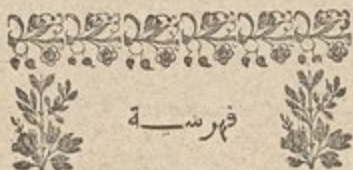 فهرسية